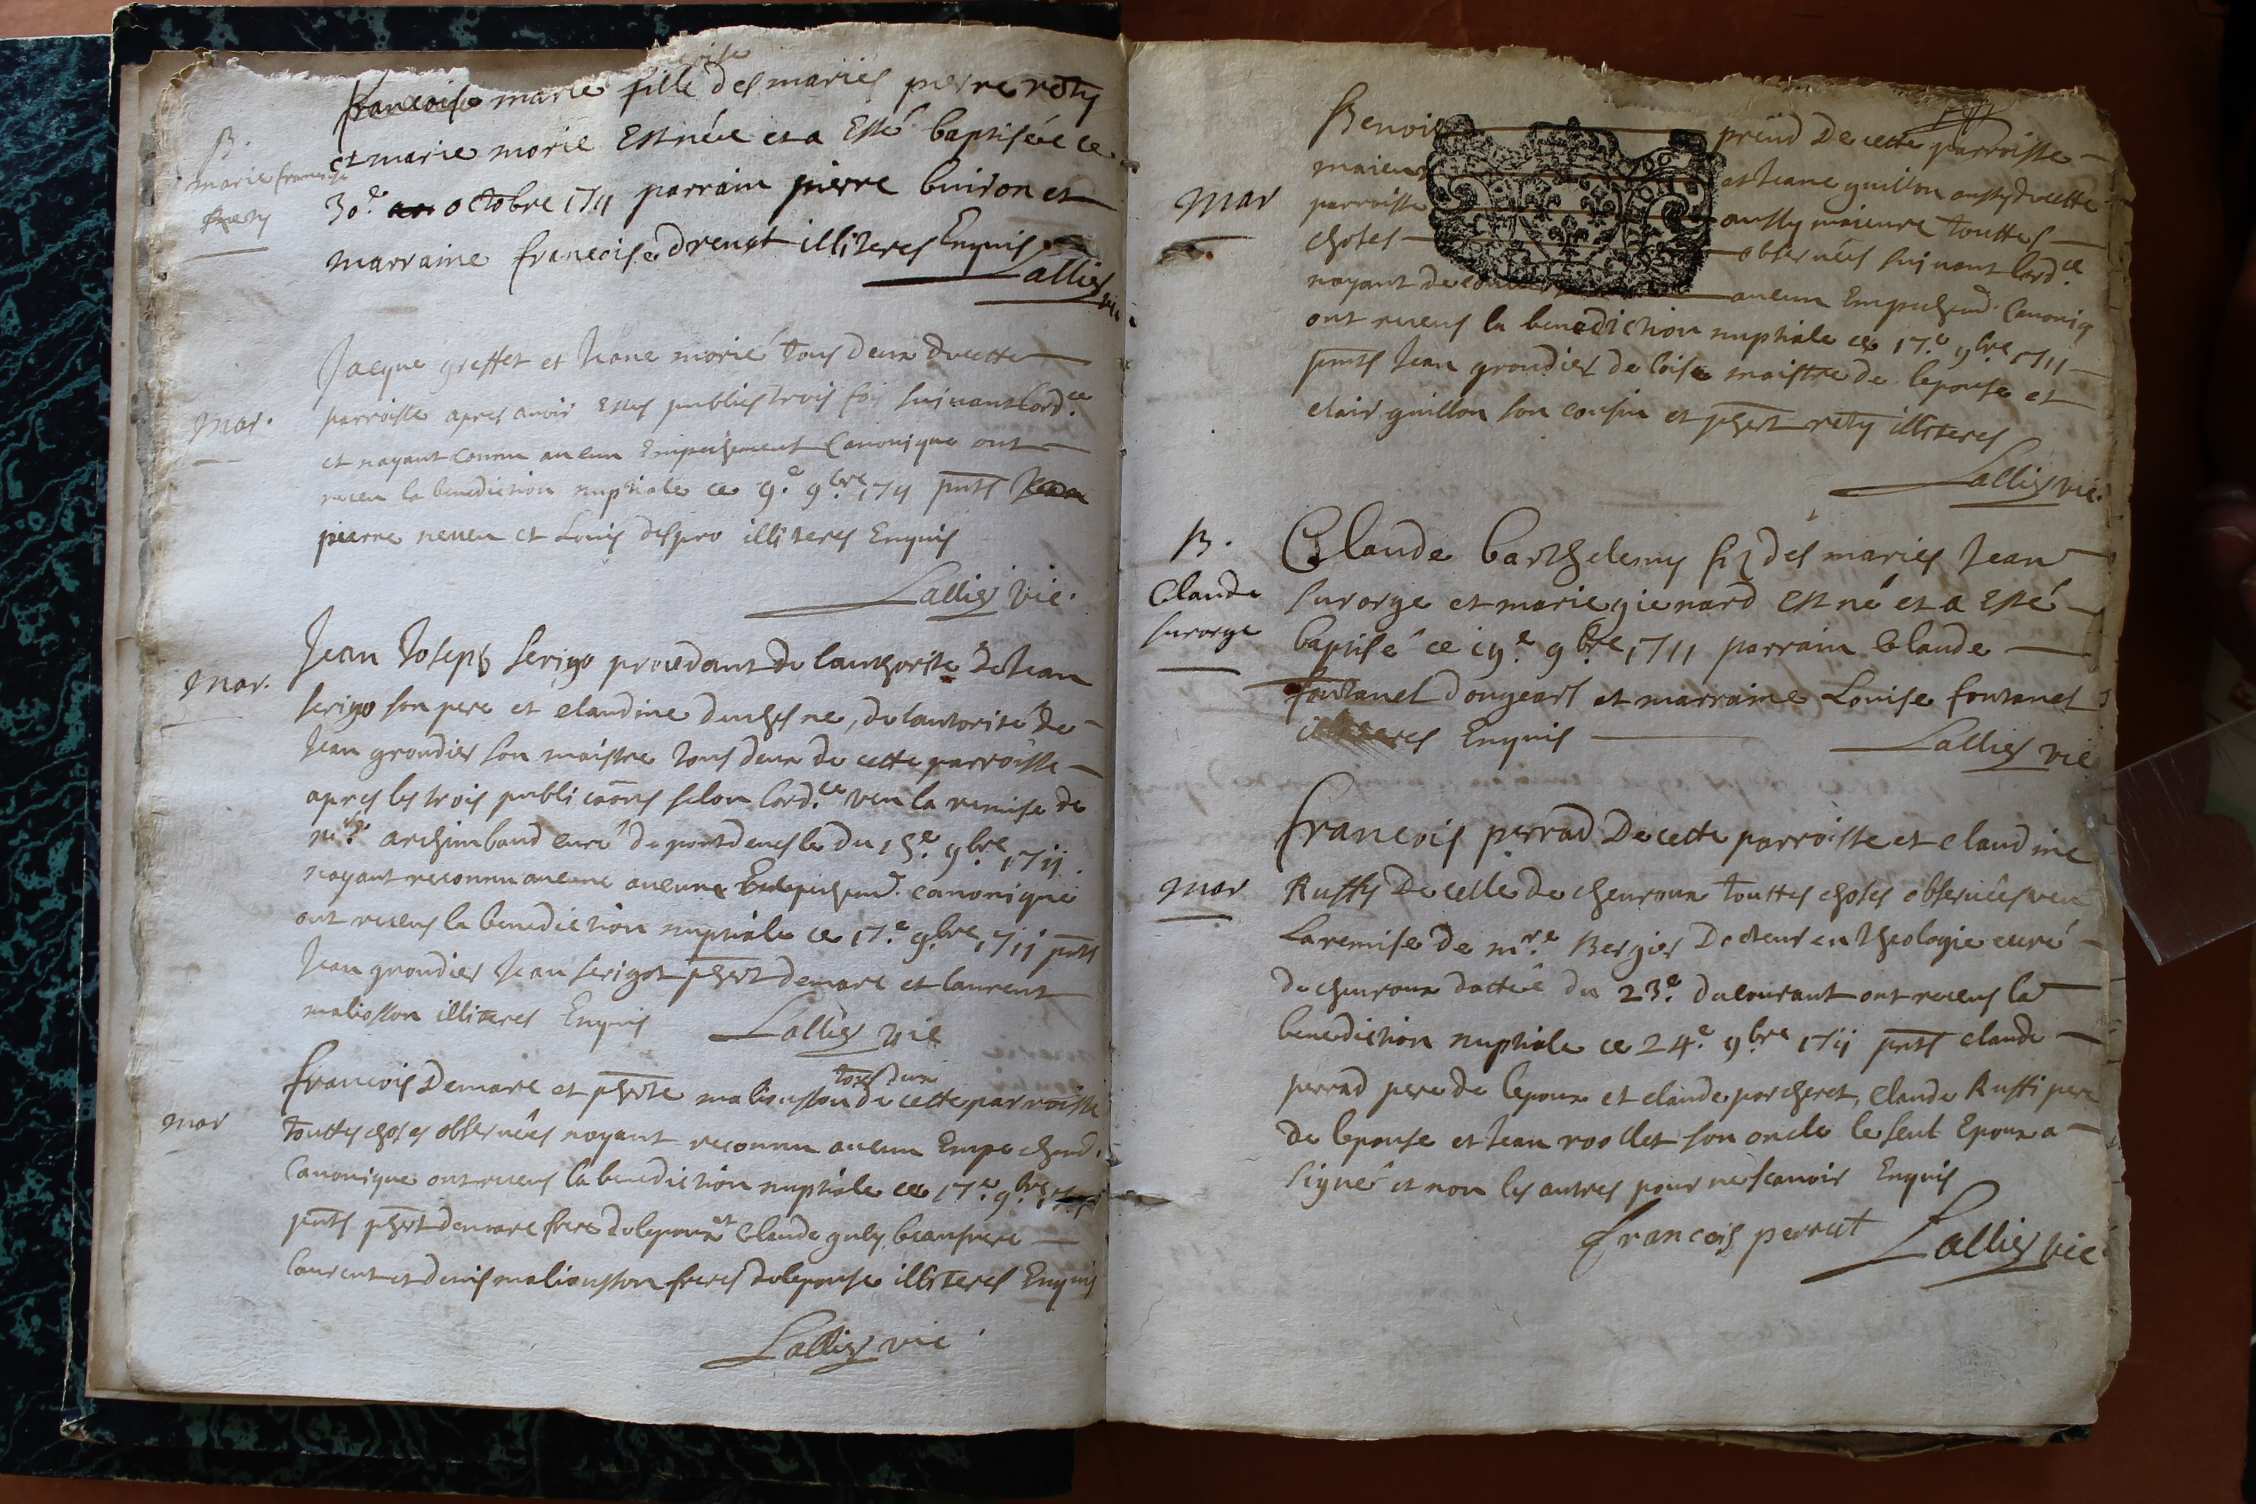 francoise marie fille des mariés pierre rety
et marie morie Est née et a Esté baptisée ce
B.
marie francoise
rety
30.e octobre 1711 parrain pierre buiron et
marraine francoise dreuet illiteres Enquis
Lallier vic
Jacque greffet et Jeane morié tous deux de cette
mar.
parroisse apres avoir Estes publies trois fois suivant lord.ce
et nayant connu aucun Empeschement Canonique ont
receu la benediction nuptiale ce 9.e 9.bre 1711 pnts
pierre neveu et Louis despro illiteres Enquis
Lallier vic.
mar.
Jean Joseph serigo procedant de lauthorite de Jean
serigo son pere et claudine duchesne, de lautorité de
Jean grondier son maistre tous deux de cette parroisse
apres les trois publicaōns selon lord.ce veu la remise de
m.re archimbaud curé de pontdevesle du 15.e 9.bre 1711.
nayant reconnu aucune aucune Empeschemt. canonique
ont receus la benediction nuptiale ce 17.e 9.bre 1711 pnts
Jean grondier Jean serigot phbert demare et laurent
malioston illiteres Enquis Lallier vic
mar
francois Demare et phbte malousson tous deux de cette parroisse
touttes choses observées nayant reconnu aucun Empechemt.
Canonique ont receus la benediction nuptiale ce 17.e 9.bre
pnts phbert demare frere de lepoux et Claude guly beaufrere
Laurent et denis malionsson freres de lepouse illiteres Enquis
Lallier vic
mar
Benoi prüd De cette parroisse
maieur et Jeane guillon aussy de cette
parroisse aussy maieure touttes
choses observées suivant lord.ce
nayant deco aucun Empeschemt. Canoniq
ont receus la benediction nuptiale ce 17.e 9.bre 1711
pnts Jean grondier de loise maistre de lepouse et
clair guillon son cousin et phbert rety illiteres
Lallier vic.
B.
Claude
surorge
Claude barthelemy filz des mariés Jean
surorge et marie gienard est né et a Esté
baptisé ce 19.e 9.bre 1711 parrain Claude
fontanel dongeart et marraine Louise fontanel
illiteres Enquis Lallier vic
mar
francois perrad De cette parroisse et claudine
Ruffy de celle de chevroux touttes choses observées veu
La remise de m.re Bergier Docteur en theologie curé
de chevroux dattée du 23.e du courant ont receus la
benediction nuptiale ce 24.e 9.bre 1711 pnts claude
perrad pere de lepoux et claude porcheret, claude Ruffi pere
de lepouse et Jean roollet son oncle le seul Epoux a
signé et non les autres pour ne scavoir Enquis
francois perrat Lallier vic